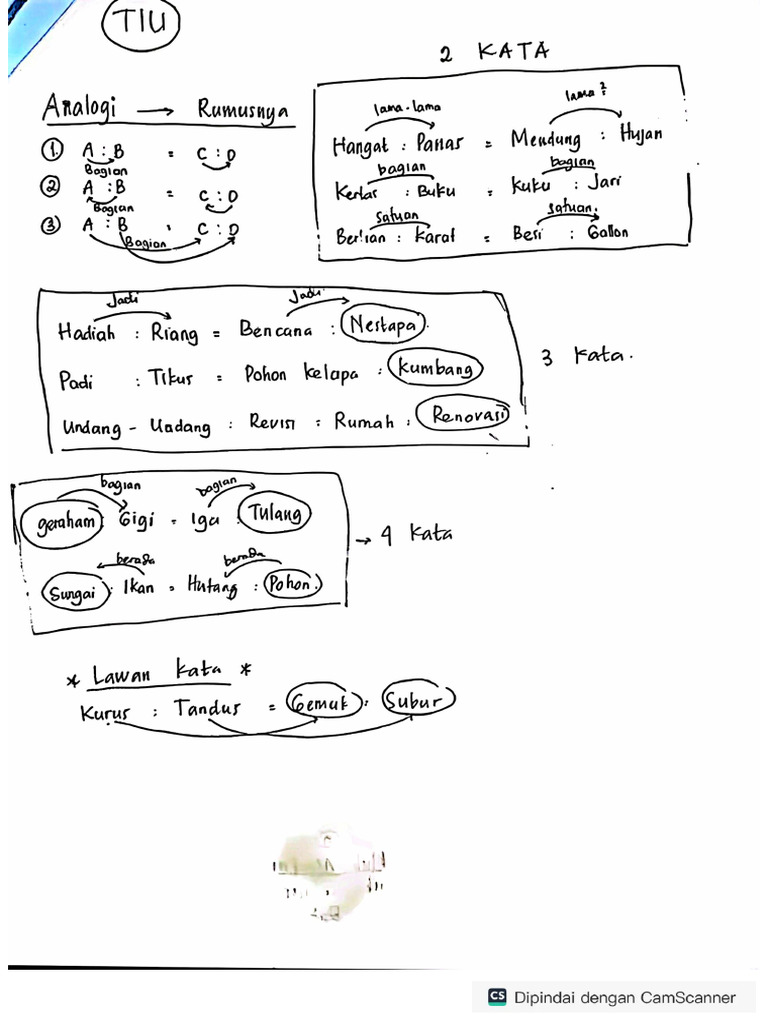 TIU
2 KATA
Analogi → Rumusnya
lama-lama
lama²
Hangat : Panas = Mendung : Hujan
① A : B = C : D
Bagian
bagian
bagian
Kertas : Buku = Kuku : Jari
② A : B = C : D
Bagian
satuan
satuan.
Berlian : Karat = Besi : Gallon
③ A : B , C : D
Bagian
Jadi
Jadi
Hadiah : Riang = Bencana : Nestapa.
Padi : Tikus = Pohon kelapa : kumbang
3 Kata.
Undang - Undang : Revisi = Rumah : Renovasi
bagian
bagian
geraham : Gigi = Iga : Tulang
→ 4 Kata
berada
berada
Sungai : Ikan = Hutang : Pohon.
* Lawan kata *
Kurus : Tandus = Gemuk : Subur
CS Dipindai dengan CamScanner